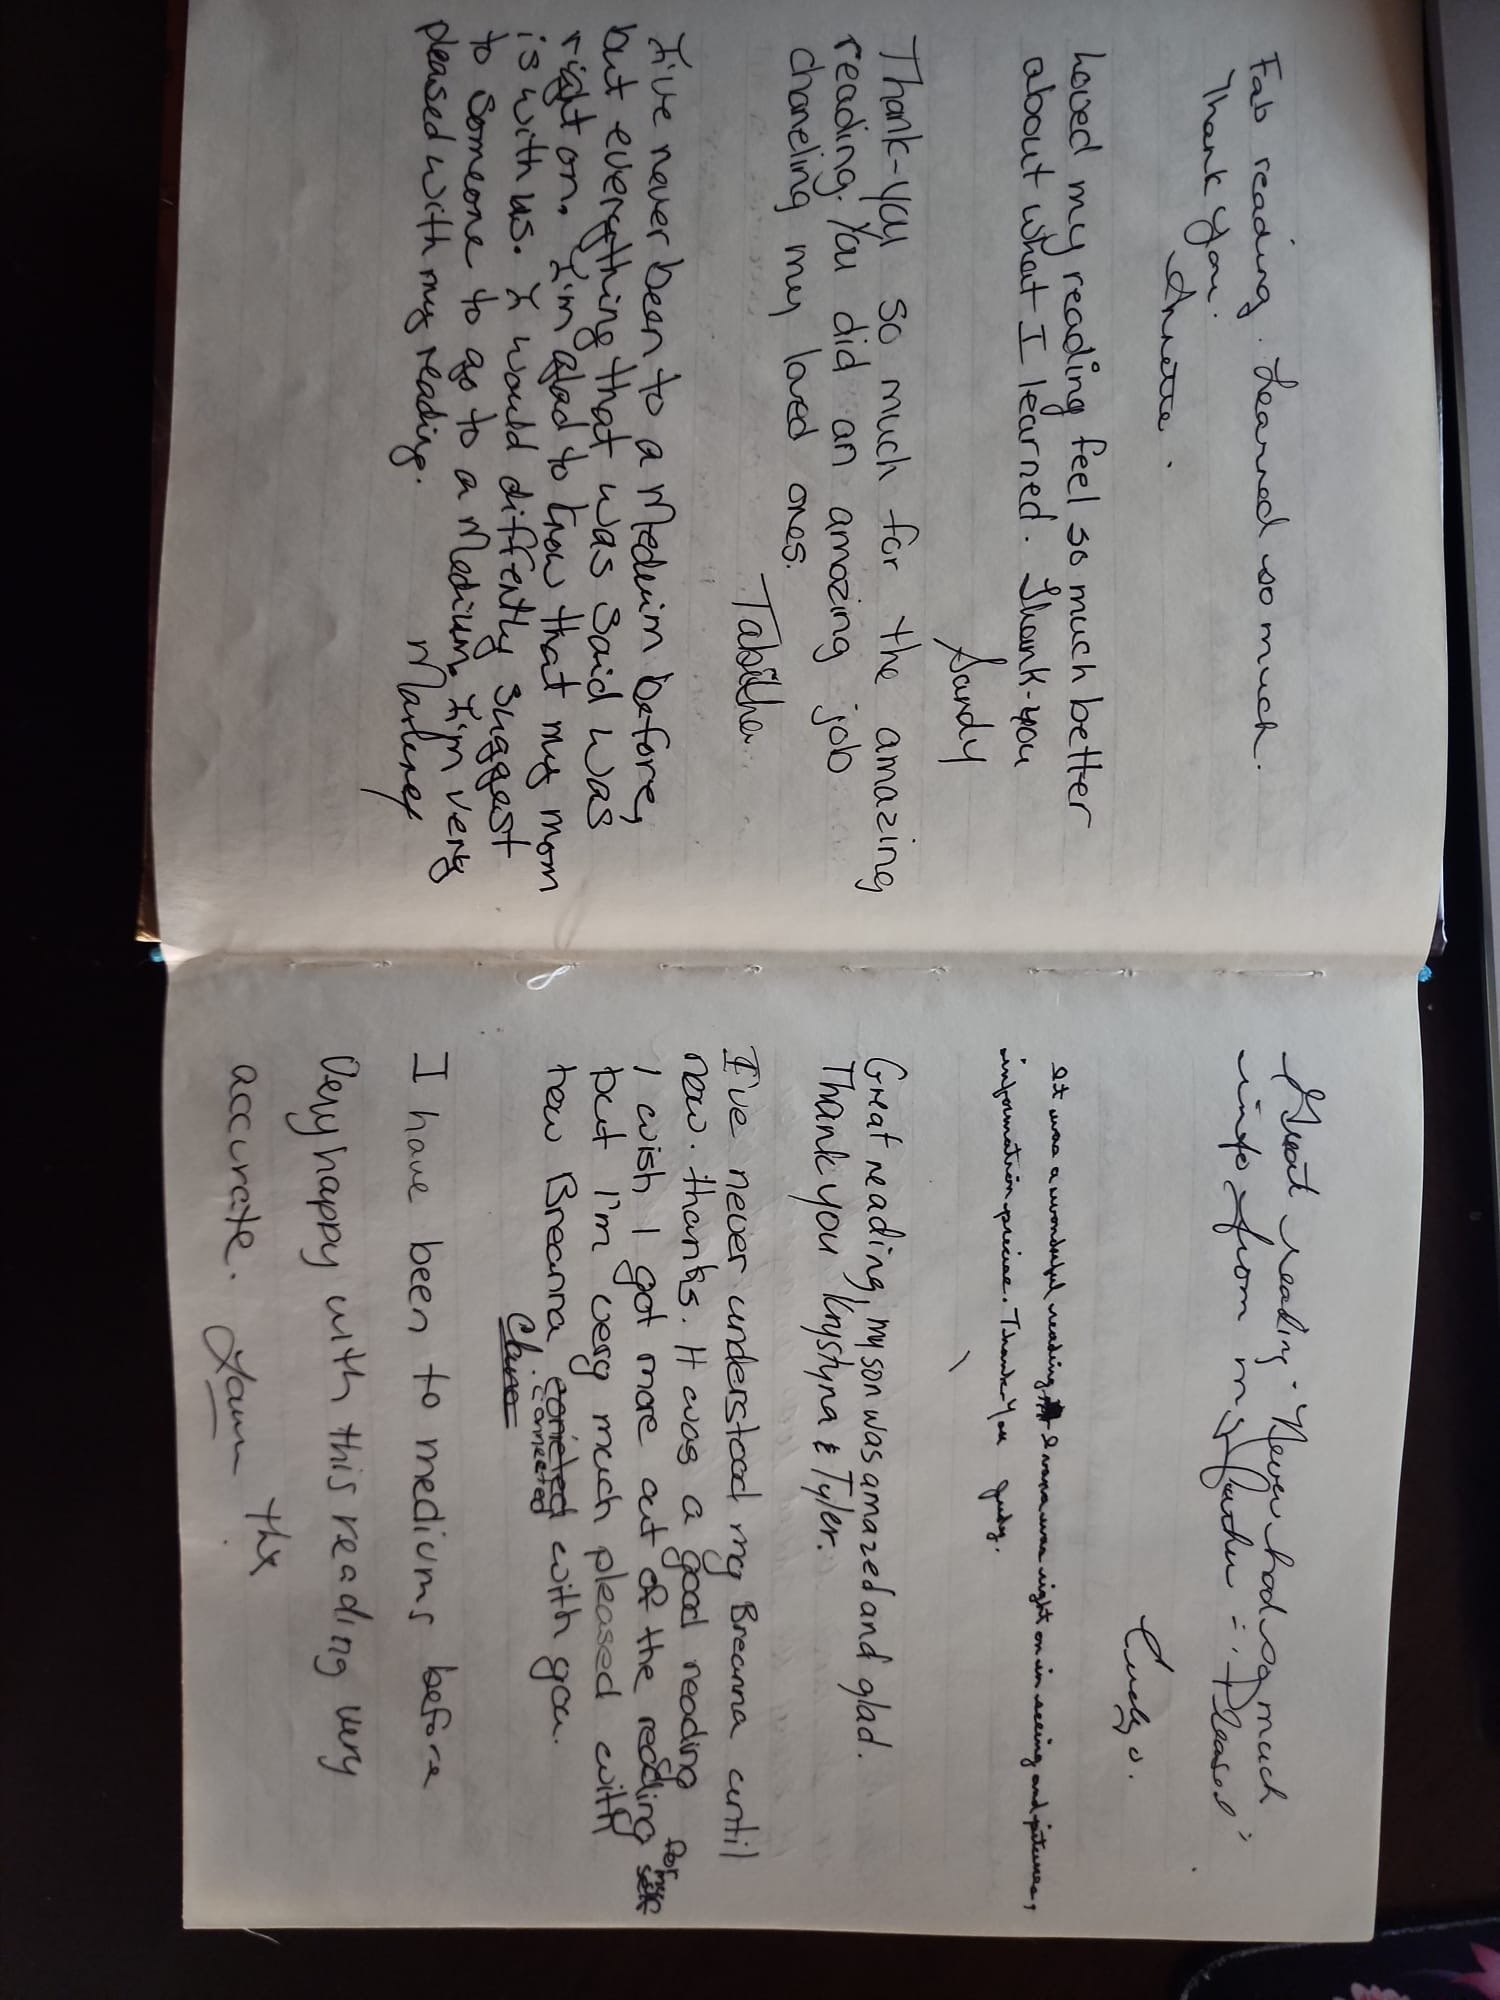 Fab reading. Learned so much.
Thank you.
Annette.
Loved my reading feel so much better
about what I learned. Thank-you
Sandy
Thank-you so much for the amazing
reading. You did an amazing job
chaneling my loved ones.
Tabitha
I've never been to a Meduim before,
but everything that was said was
right on. I'm glad to know that my mom
is with us. I would diffrently suggest
to someone to go to a Medium. I'm very
pleased with my reading.
Great reading. Never had so much
info from my Pleased
It was a wonderful reading right on in seeing and pictures,
information precise. Thank-You Judy.
Great reading, my son was amazed and glad.
Thank you Krystyna & Tyler.
I've never understood my Breanna until
now. thanks. It was a good reading
I wish I got more out of the reading for my self
but I'm very much pleased with
how Breanna connected with you.
Claire
I have been to mediums before
Very happy with this reading very
accurate. thx